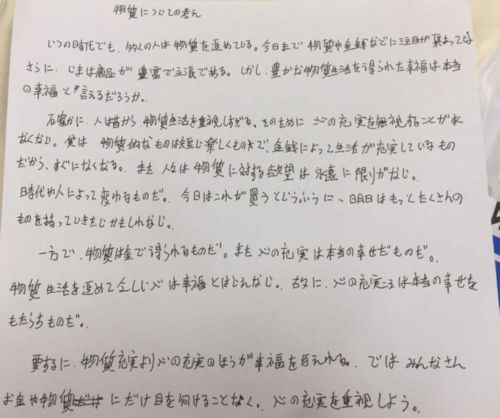 物質についての考え
いつの時代でも、多くの人は物質を追めている。今日まで物質や金銭などに注目が集まっている
さらに、いまは商品が豊富で立派である。しかし、豊かな物質生活を得られた幸福は本当
の幸福と言えるだろうか。
石確かに、人は昔から物質生活を重視しすぎる、そのために心の充実を無視することが少
なくない。実は物質的なものは短い楽しくもので、金銭によって生活が充実しているもの
だから、すぐになくなる。また人々は物質に対する欲望は永遠に限りがない。
時代や人によって変わるものだ。今日はこれが買うというふうに、明日はもっとたくさんの
ものを持っていきたいかもしれない。
一方で、物質は金で得られるものだ。また心の充実は本当の幸せだものだ。
物質生活を追めて全しい心は幸福とはいえない。故に、心の充実こそは本当の幸せを
もたらちものだ。
要するに、物質充実より心の充実のほうが幸福を与えれる。では みんなさん
お金や物質にだけ目を向けることなく、心の充実を重視しよう。